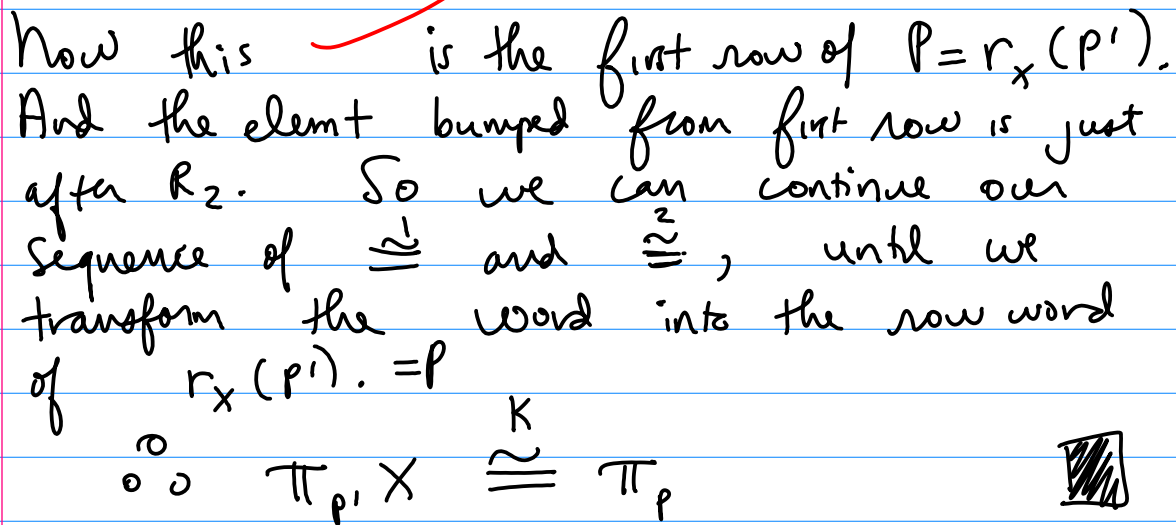 Now this is the first row of P = r_x (P').
And the elemt bumped from first row is just
after R_2. So we can continue our
sequence of ≅^1 and ≅^2, until we
transform the word into the row word
of r_x (P'). = P
∴ π_{P'} x ≅^K π_P